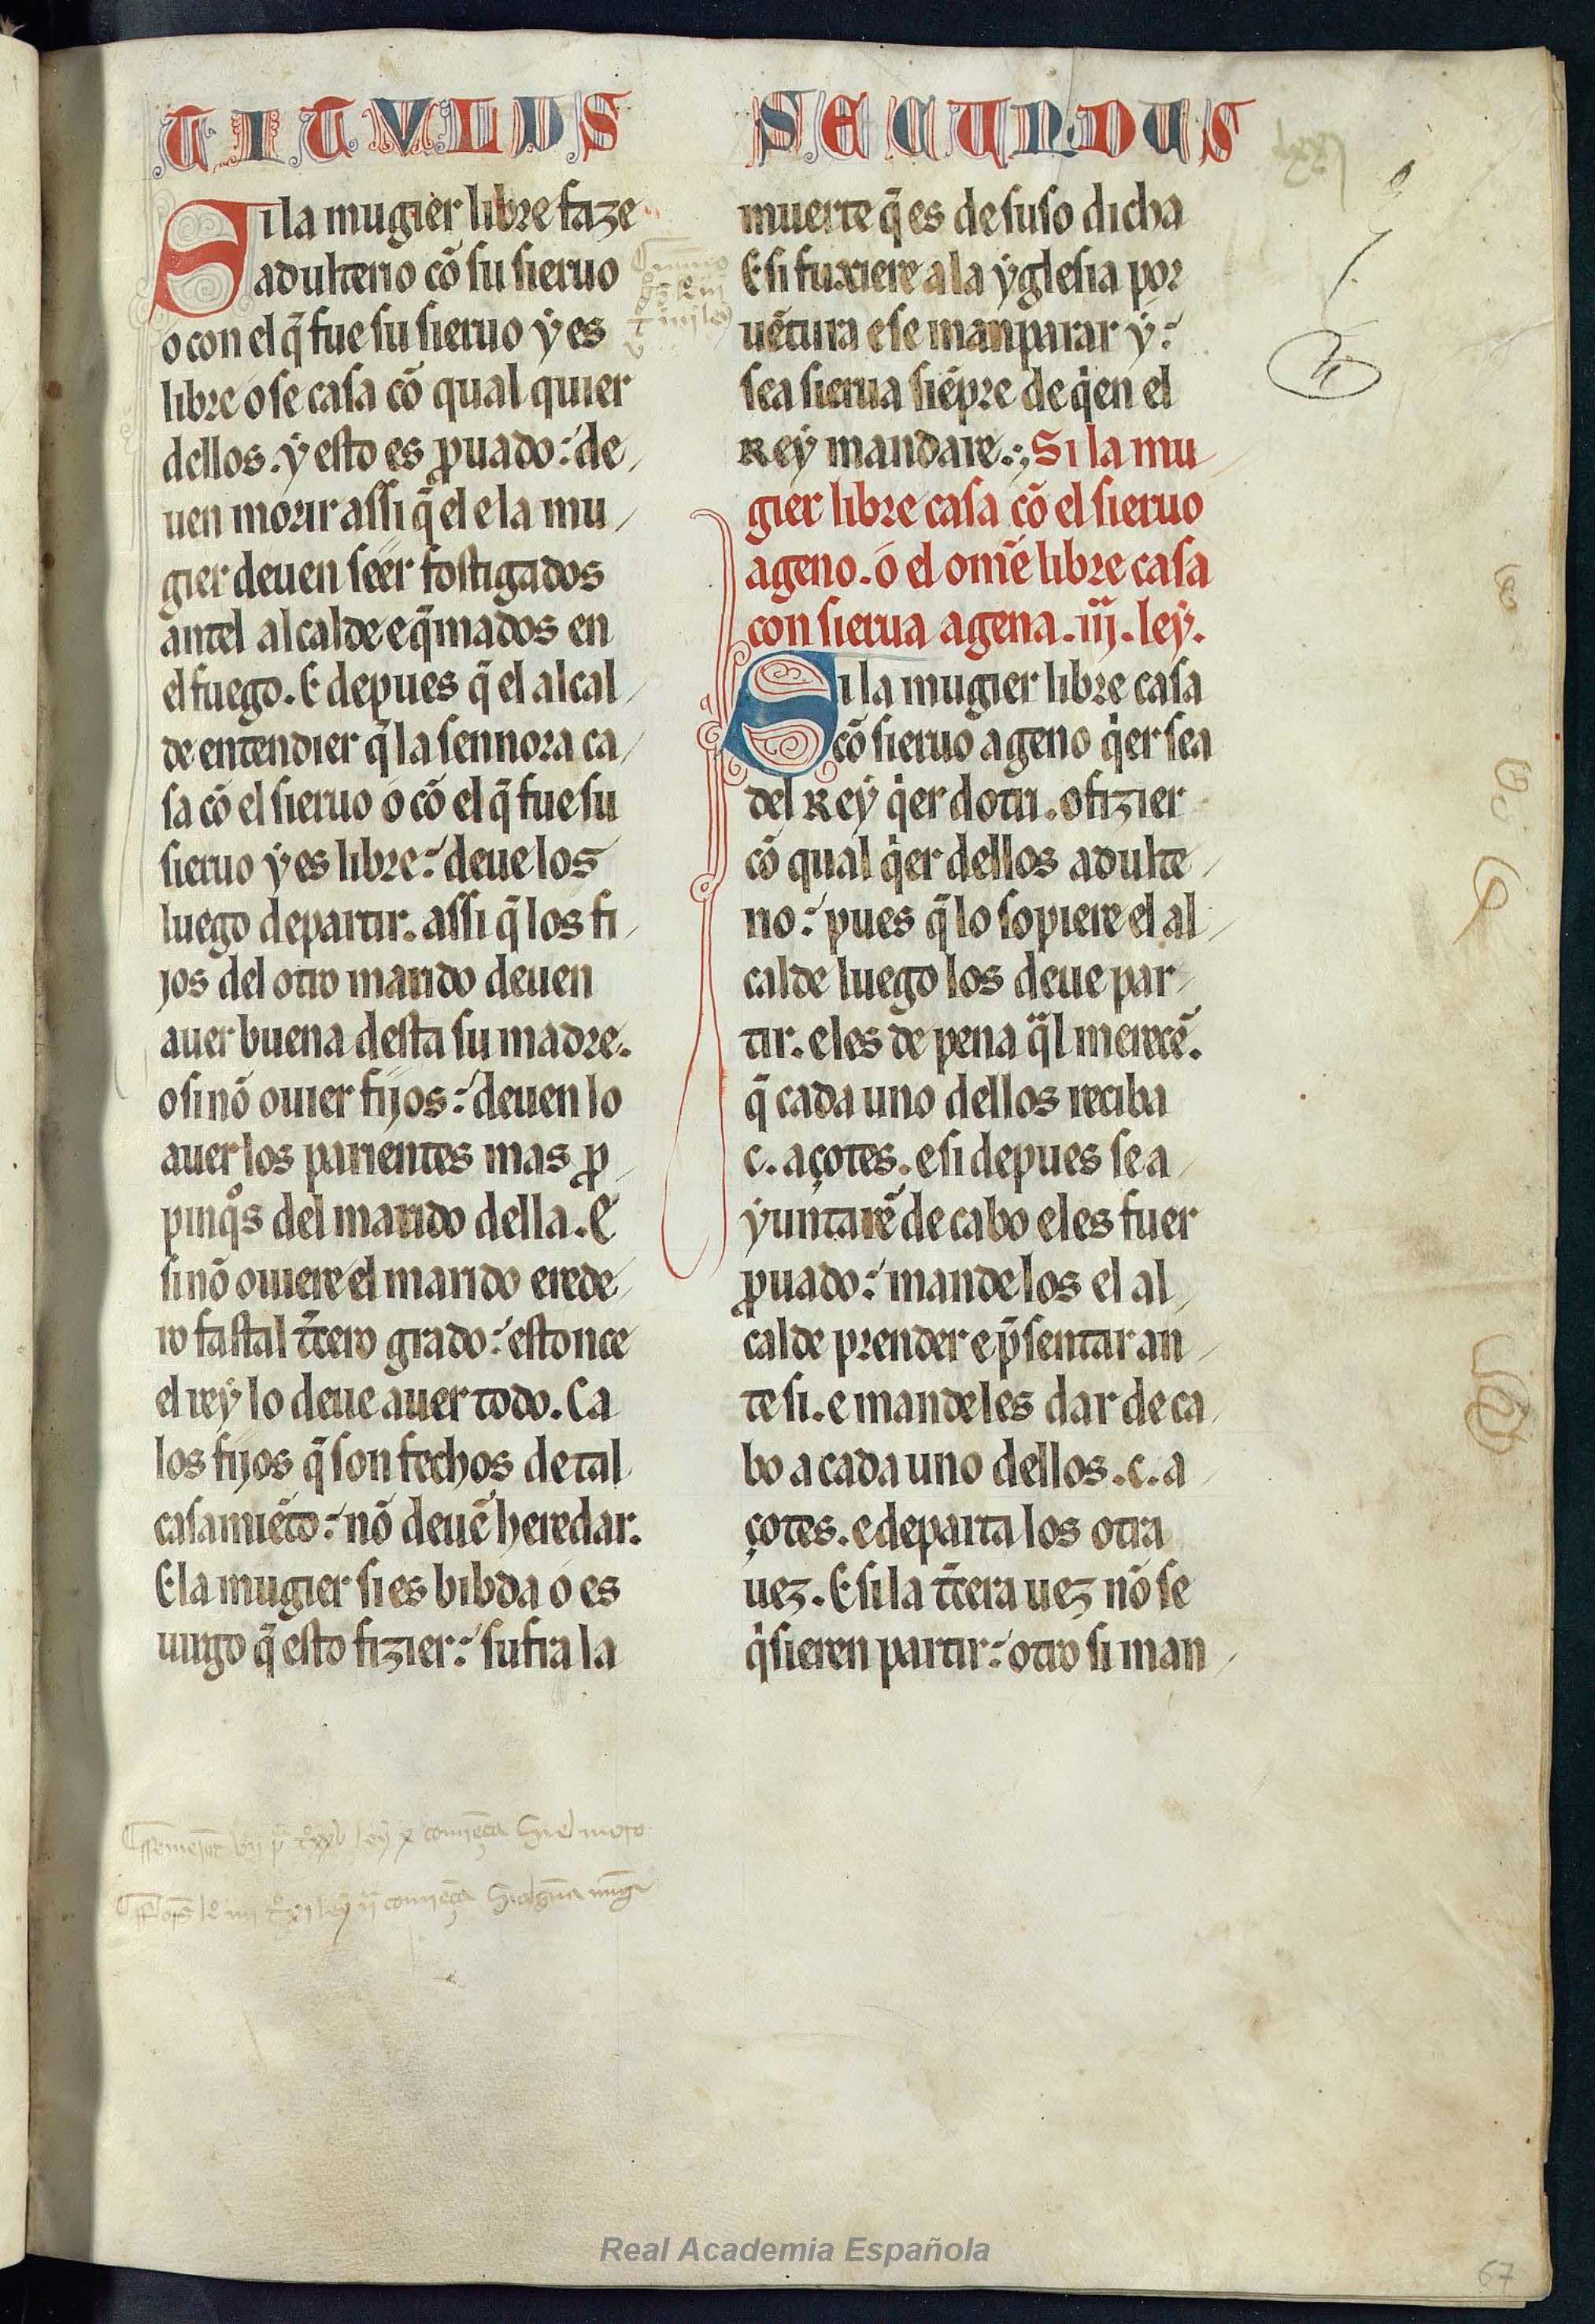 TITVLVS SECUNDUS
Si la mugier libre faze
adulterio cõ su sieruo
o con el q̃ fue su sieruo ẏ es
libre o se casa cõ qual quier
dellos. ẏ esto es ꝓuado: de
uen morir assi q̃ el e la mu
gier deuen seer fostigados
antel alcalde e q̃mados en
el fuego. E depues q̃ el alcal
de entendier q̃ la sennora ca
sa cõ el sieruo o cõ el q̃ fue su
sieruo ẏ es libre: deue los
luego departir. assi q̃ los fi
jos del otro marido deuen
auer buena desta su madre.
o si nõ ouier fijos: deuen lo
auer los parientes mas ꝓ
pinq̊s del marido della. E
si nõ ouiere el marido erede
ro fastal t̃cero grado: estonce
el reẏ lo deue auer todo. Ca
los fijos q̃ son fechos de tal
casamiẽto: nõ deuẽ heredar.
E la mugier si es bibda o es
uirgo q̃ esto fizier: sufra la
muerte q̃ es de suso dicha
E si fuxiere a la ẏglesia por
uẽtura e se manparar ẏ:
sea sierua siẽpre de qͥen el
Reẏ mandare. Si la mu
gier libre casa cõ el sieruo
ageno. o el om̃e libre casa
con sierua agena. iij. leẏ.
Si la mugier libre casa
cõ sieruo ageno qͥer sea
del Reẏ qͥer dotri. o fizier
cõ qual qͥer dellos adulte
rio: pues q̃ lo sopiere el al
calde luego los deue par
tir. e les de pena qͣl merecẽ.
q̃ cada uno dellos reciba
c. açotes. e si depues se a
ẏuntarẽ de cabo e les fuer
ꝓuado: mande los el al
calde prender e p̃sentar an
te si. e mandeles dar de ca
bo a cada uno dellos. c. a
çotes. e departa los otra
uez. E si la t̃cera uez nõ se
qͥsieren partir: otro si man
Real Academia Española
67